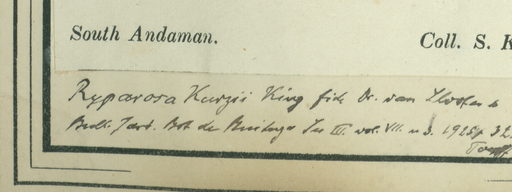 South Andaman. Coll. S. K
Ryparosa Kurzii King fide Dr. van Slooten in
Bull. Jard. Bot. de Buitenz. Ser III. vol. VII. n 3. 1925 / 32